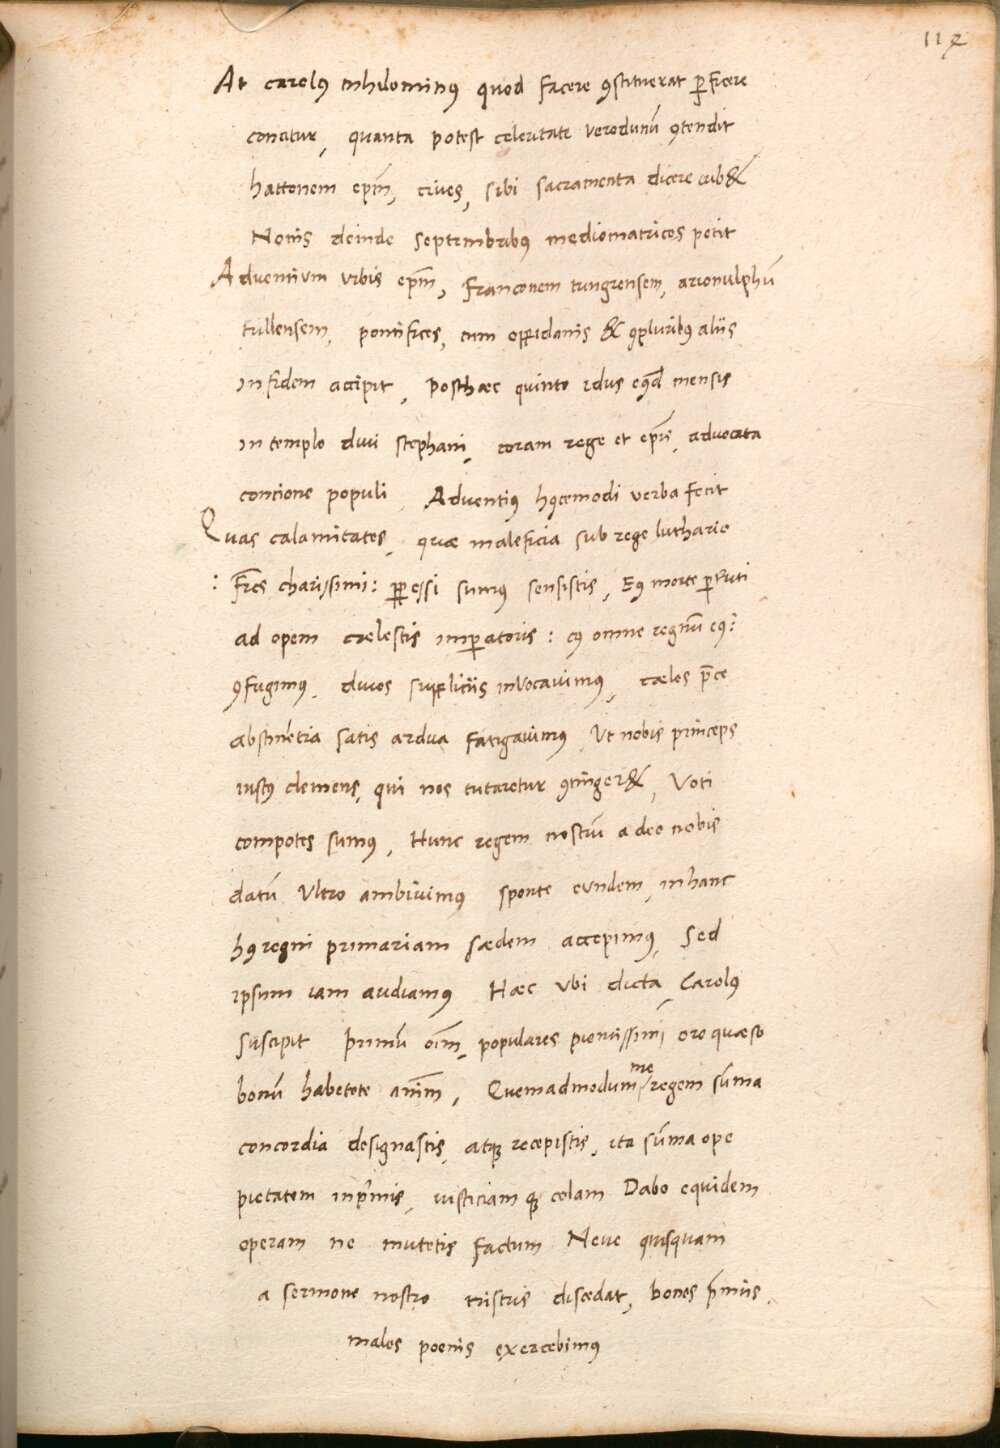 112
At carolꝰ nihilominꝰ quod facere ꝯstituerat ꝑficere
conatur, quanta potest celeritate verodunū ꝯtendit
hattonem epm̄, ciues, sibi sacramenta dicere iub&
Nonis deinde septembribꝰ mediomatrices petit
Aduentium vrbis epm̄, franconem tungrensem, arionulphū
tullensem, pontifices, cum oppidanis & ꝯpluribꝰ aliis
in fidem accipit, posthæc quinto idus eꝰdē mensis
in templo diui stephani, coram rege et epīs, aduocata
concione populi, Aduentiꝰ hꝰcemodi verba fecit
Quas calamitates, quæ maleficia sub rege luthario
: fr̄es charissimi : ꝑpessi sumꝰ sensistis, Eꝰ morte ꝑculti
ad opem cælestis imꝑatoris : cꝰ omne regnū eꝰ :
ꝯfugimꝰ, diuos suppliciis inuocauimꝰ, cælos p̄ce
abstinētia satis ardua fatigauimꝰ, Vt nobis princeps
iustꝰ clemens, qui nos tutaretur ꝯtinger&, Voti
compotes sumꝰ, Hunc regem nostrū a deo nobis
datū Vltro ambiuimꝰ sponte eundem, in hanc
hꝰ regni primariam sædem accepimꝰ, Sed
ipsum iam audiamꝰ Hæc vbi dicta, Carolꝰ
suscipit primū oīm, populares pientissimi, oro quæso
bonū habetote anīm, Quemadmodum me regem sūma
concordia designastis, atqꝫ recepistis, ita sūma ope
pietatem inp̄mis, iusticiam qꝫ colam Dabo equidem
operam ne mutetis factum Neue quisquam
a sermone nostro tristis discedat, bonos p̄miis,
malos poenis exercebimꝰ